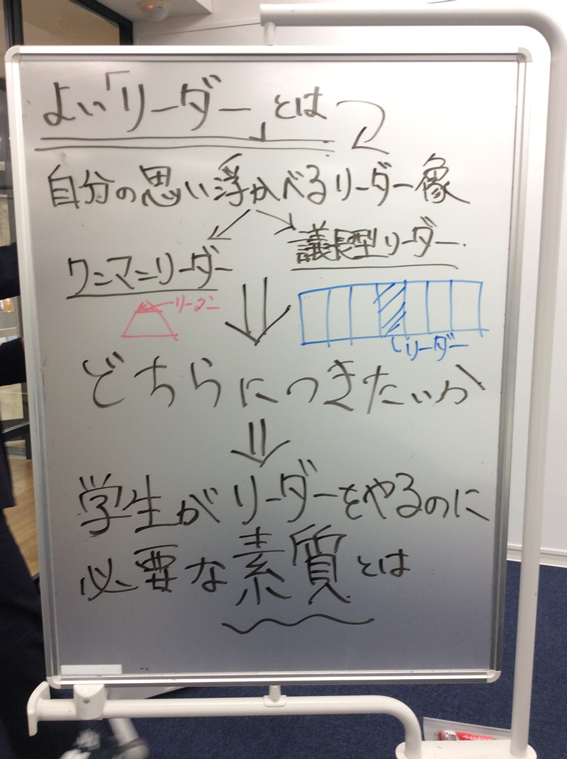 よい「リーダー」とは
自分の思い浮かべるリーダー像
ワンマンリーダー
議長型リーダー.
リーダー
リーダー
どちらにつきたいか
学生がリーダーをやるのに
必要な素質とは